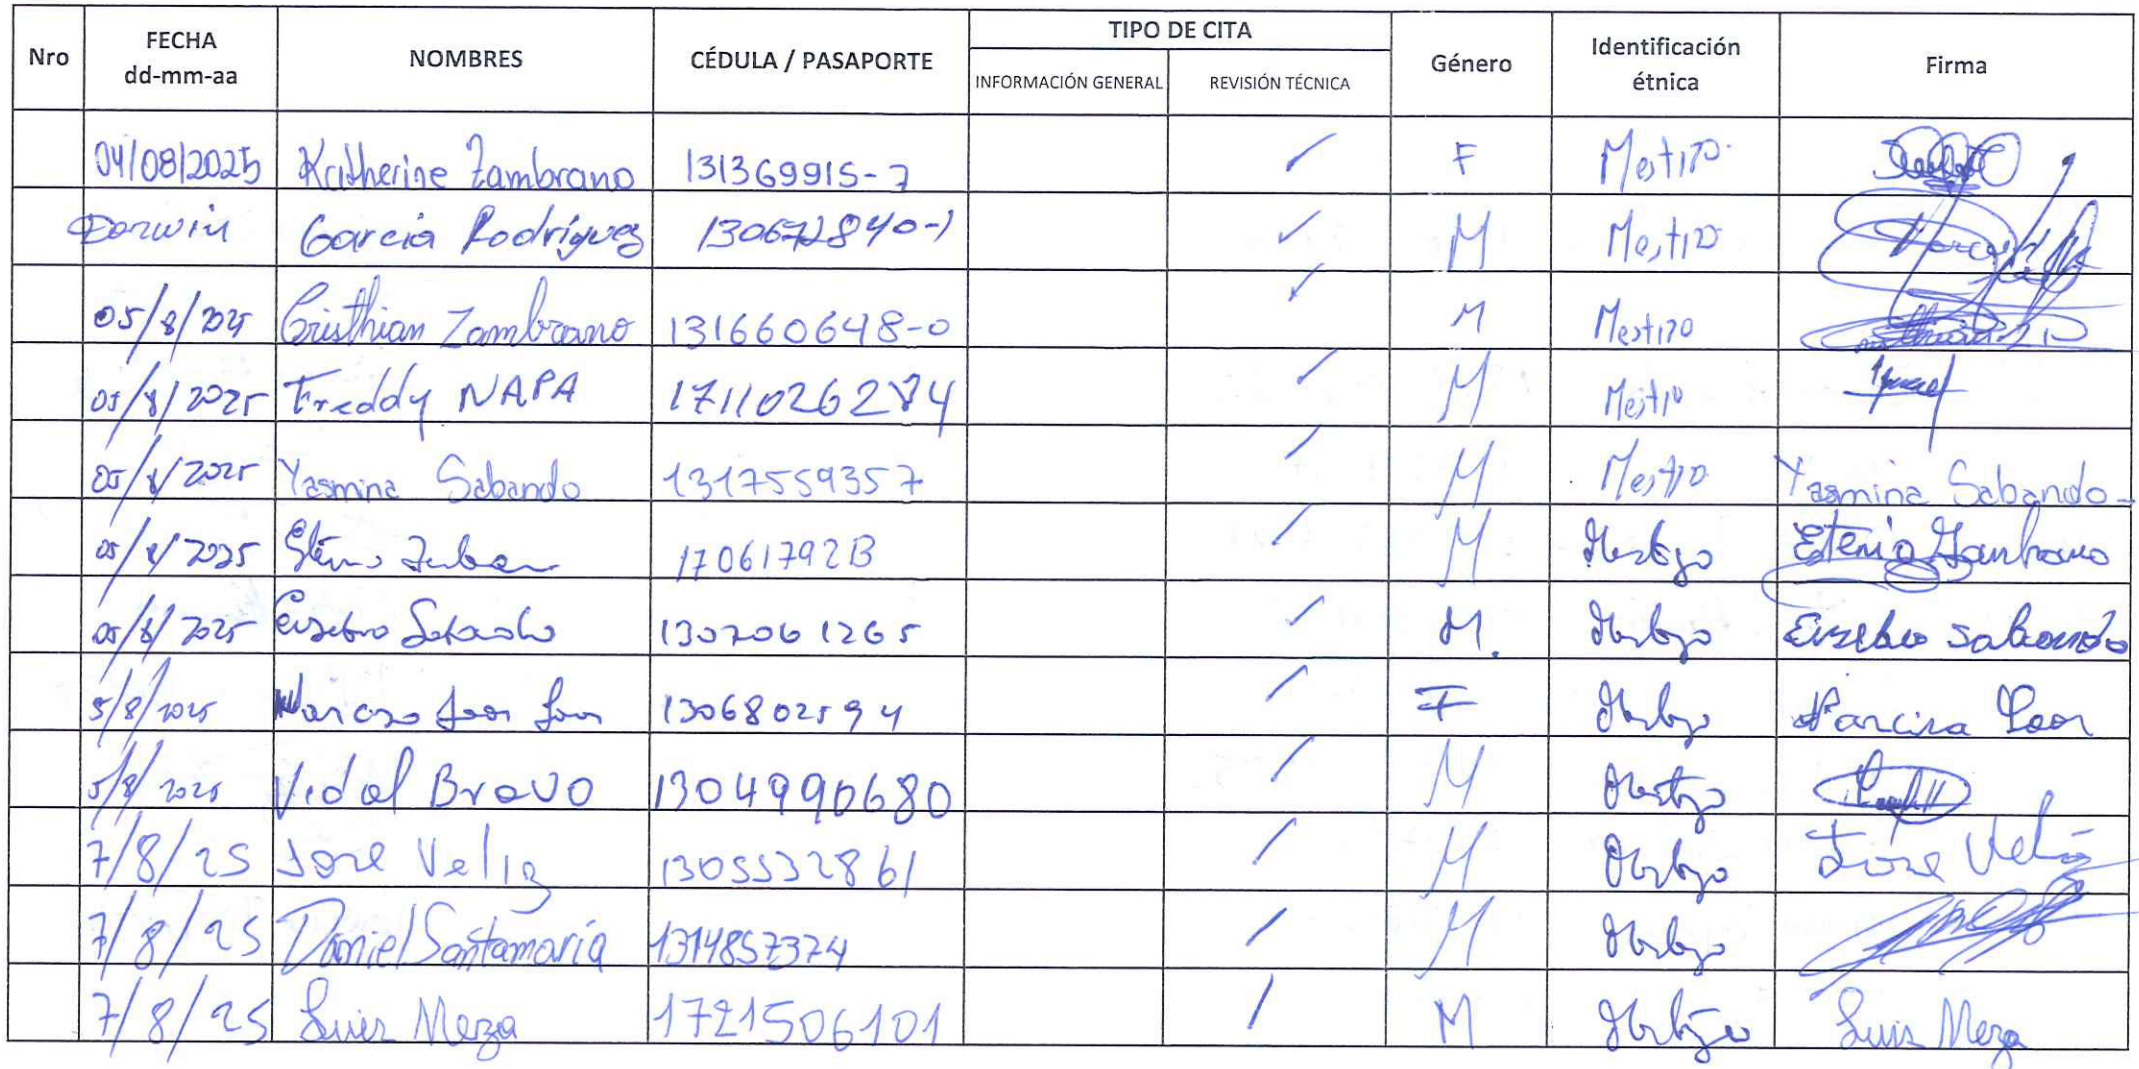 Nro FECHA dd-mm-aa NOMBRES CÉDULA / PASAPORTE TIPO DE CITA INFORMACIÓN GENERAL REVISIÓN TÉCNICA Género Identificación étnica Firma
04/08/2025 Katherine Zambrano 131369915-7 F Mestizo
Darwin Garcia Rodríguez 130672840-1 M Mestizo
05/8/2025 Cristhian Zambrano 131660648-0 M Mestizo
05/8/2025 Freddy NAPA 1711026284 M Mestizo
05/8/2025 Yasmina Sabando 1317559357 M Mestizo Yasmina Sabando
05/8/2025 17061792B M Mestizo Etenio Zambrano
05/8/2025 Eusebio Sabando 1307061265 M. Mestizo Eusebio Sabando
5/8/2025 Narcisa Loor Loor 1306802594 F Mestizo Narcisa Loor
5/8/2025 Vidal Bravo 1304990680 M Mestizo
7/8/25 Jose Veliz 1305532861 M Mestizo Jose Veliz
7/8/25 Daniel Santamaría 1314857374 M Mestizo
7/8/25 Luis Meza 1721506101 M Mestizo Luis Meza